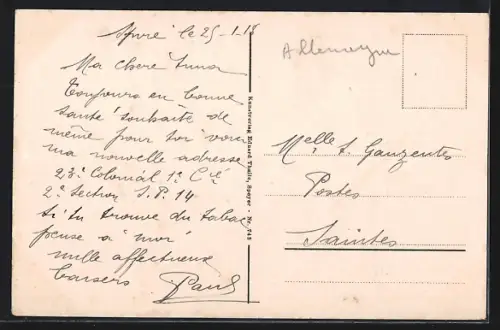 le 25-1-18
Ma chere
Toujours en bonne
santé souhaite de
même pour toi voici
ma nouvelle adresse
23e Colonial 1e Cie
2e Section S.P. 14
Si tu trouve du tabac
pense a moi
mille affectueux
baisers Paul
Kunstverlag Eduard Theile, Speyer - Nr. 745
Allemagne
Melle S. Gauzentes
Postes
Saintes